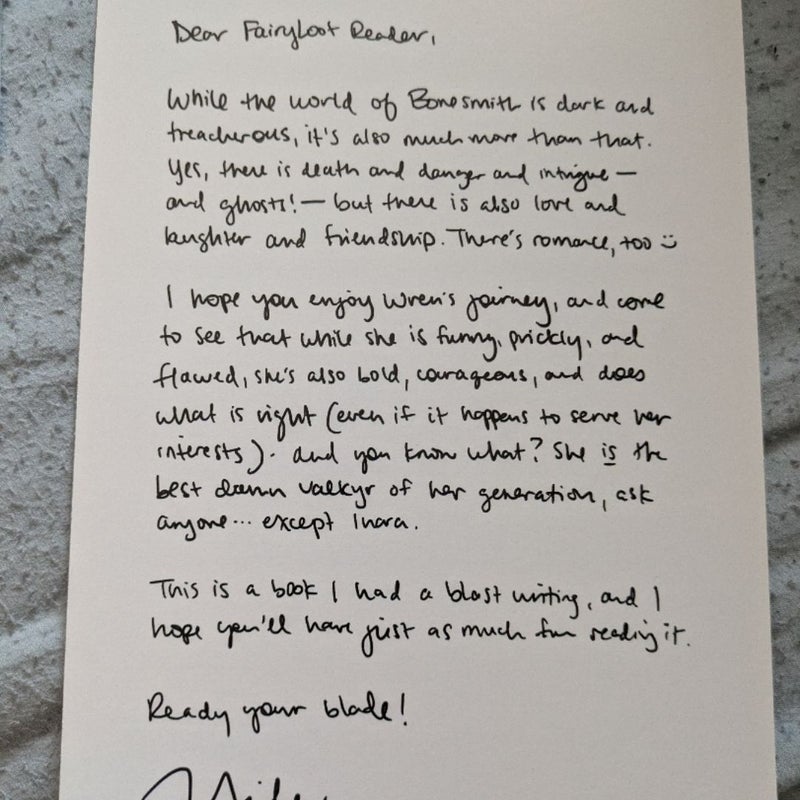 Dear Fairyloot Reader,
While the world of Bonesmith is dark and
treacherous, it's also much more than that.
Yes, there is death and danger and intrigue —
and ghosts! — but there is also love and
laughter and friendship. There's romance, too :)
I hope you enjoy Wren's journey, and come
to see that while she is funny, prickly, and
flawed, she's also bold, courageous, and does
what is right (even if it happens to serve her
interests). And you know what? She is the
best damn valkyr of her generation, ask
anyone... except Inara.
This is a book I had a blast writing, and I
hope you'll have just as much fun reading it.
Ready your blade!